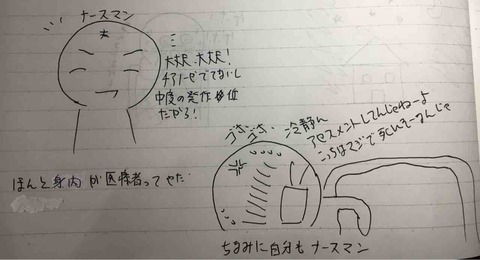 ナースマン
大丈夫、大丈夫!
チアノーゼでてないし
中度の発作位
だから!
ほんと身内が医療者ってやだ
ゴホゴホ
冷静に
アセスメントしてんじゃねーよ
こっちはマジで死にそーなんじゃ
ちなみに自分もナースマン